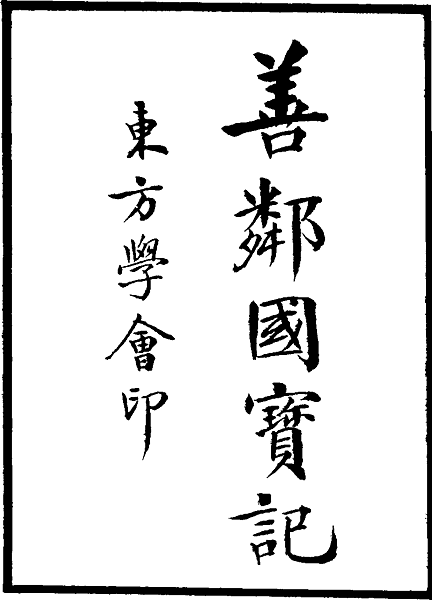 善鄰國寶記
東方學會印